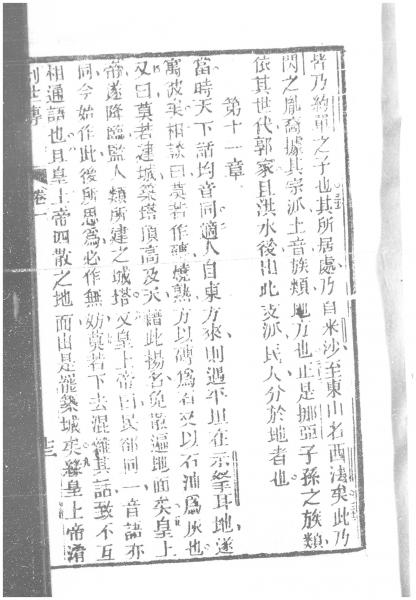 皆乃約單之子也其所居處乃自米沙至東山名西法矣此乃
閃之胤裔據其宗派土音族類地方也正是挪亞子孫之族類
依其世代郭家且洪水後出此支派民人分於地者也
第十一章
當時天下話均音同適人自東方來則遇平坦在示㧱耳地遂
寓彼矣相談曰莫若作磚燒熟方以磚為石又以石油為灰也
又曰莫若連城築塔頂高及天藉此揚名免散遍地面矣皇上
帝遂降臨監人類所建之城塔又皇上帝曰民卻同一音語亦
同今始作此後所思為必作無妨莫若下去混雜其話致不互
相通語也且皇上帝四散之地而由是罷築城矣緣皇上帝淆
創世傳
卷一